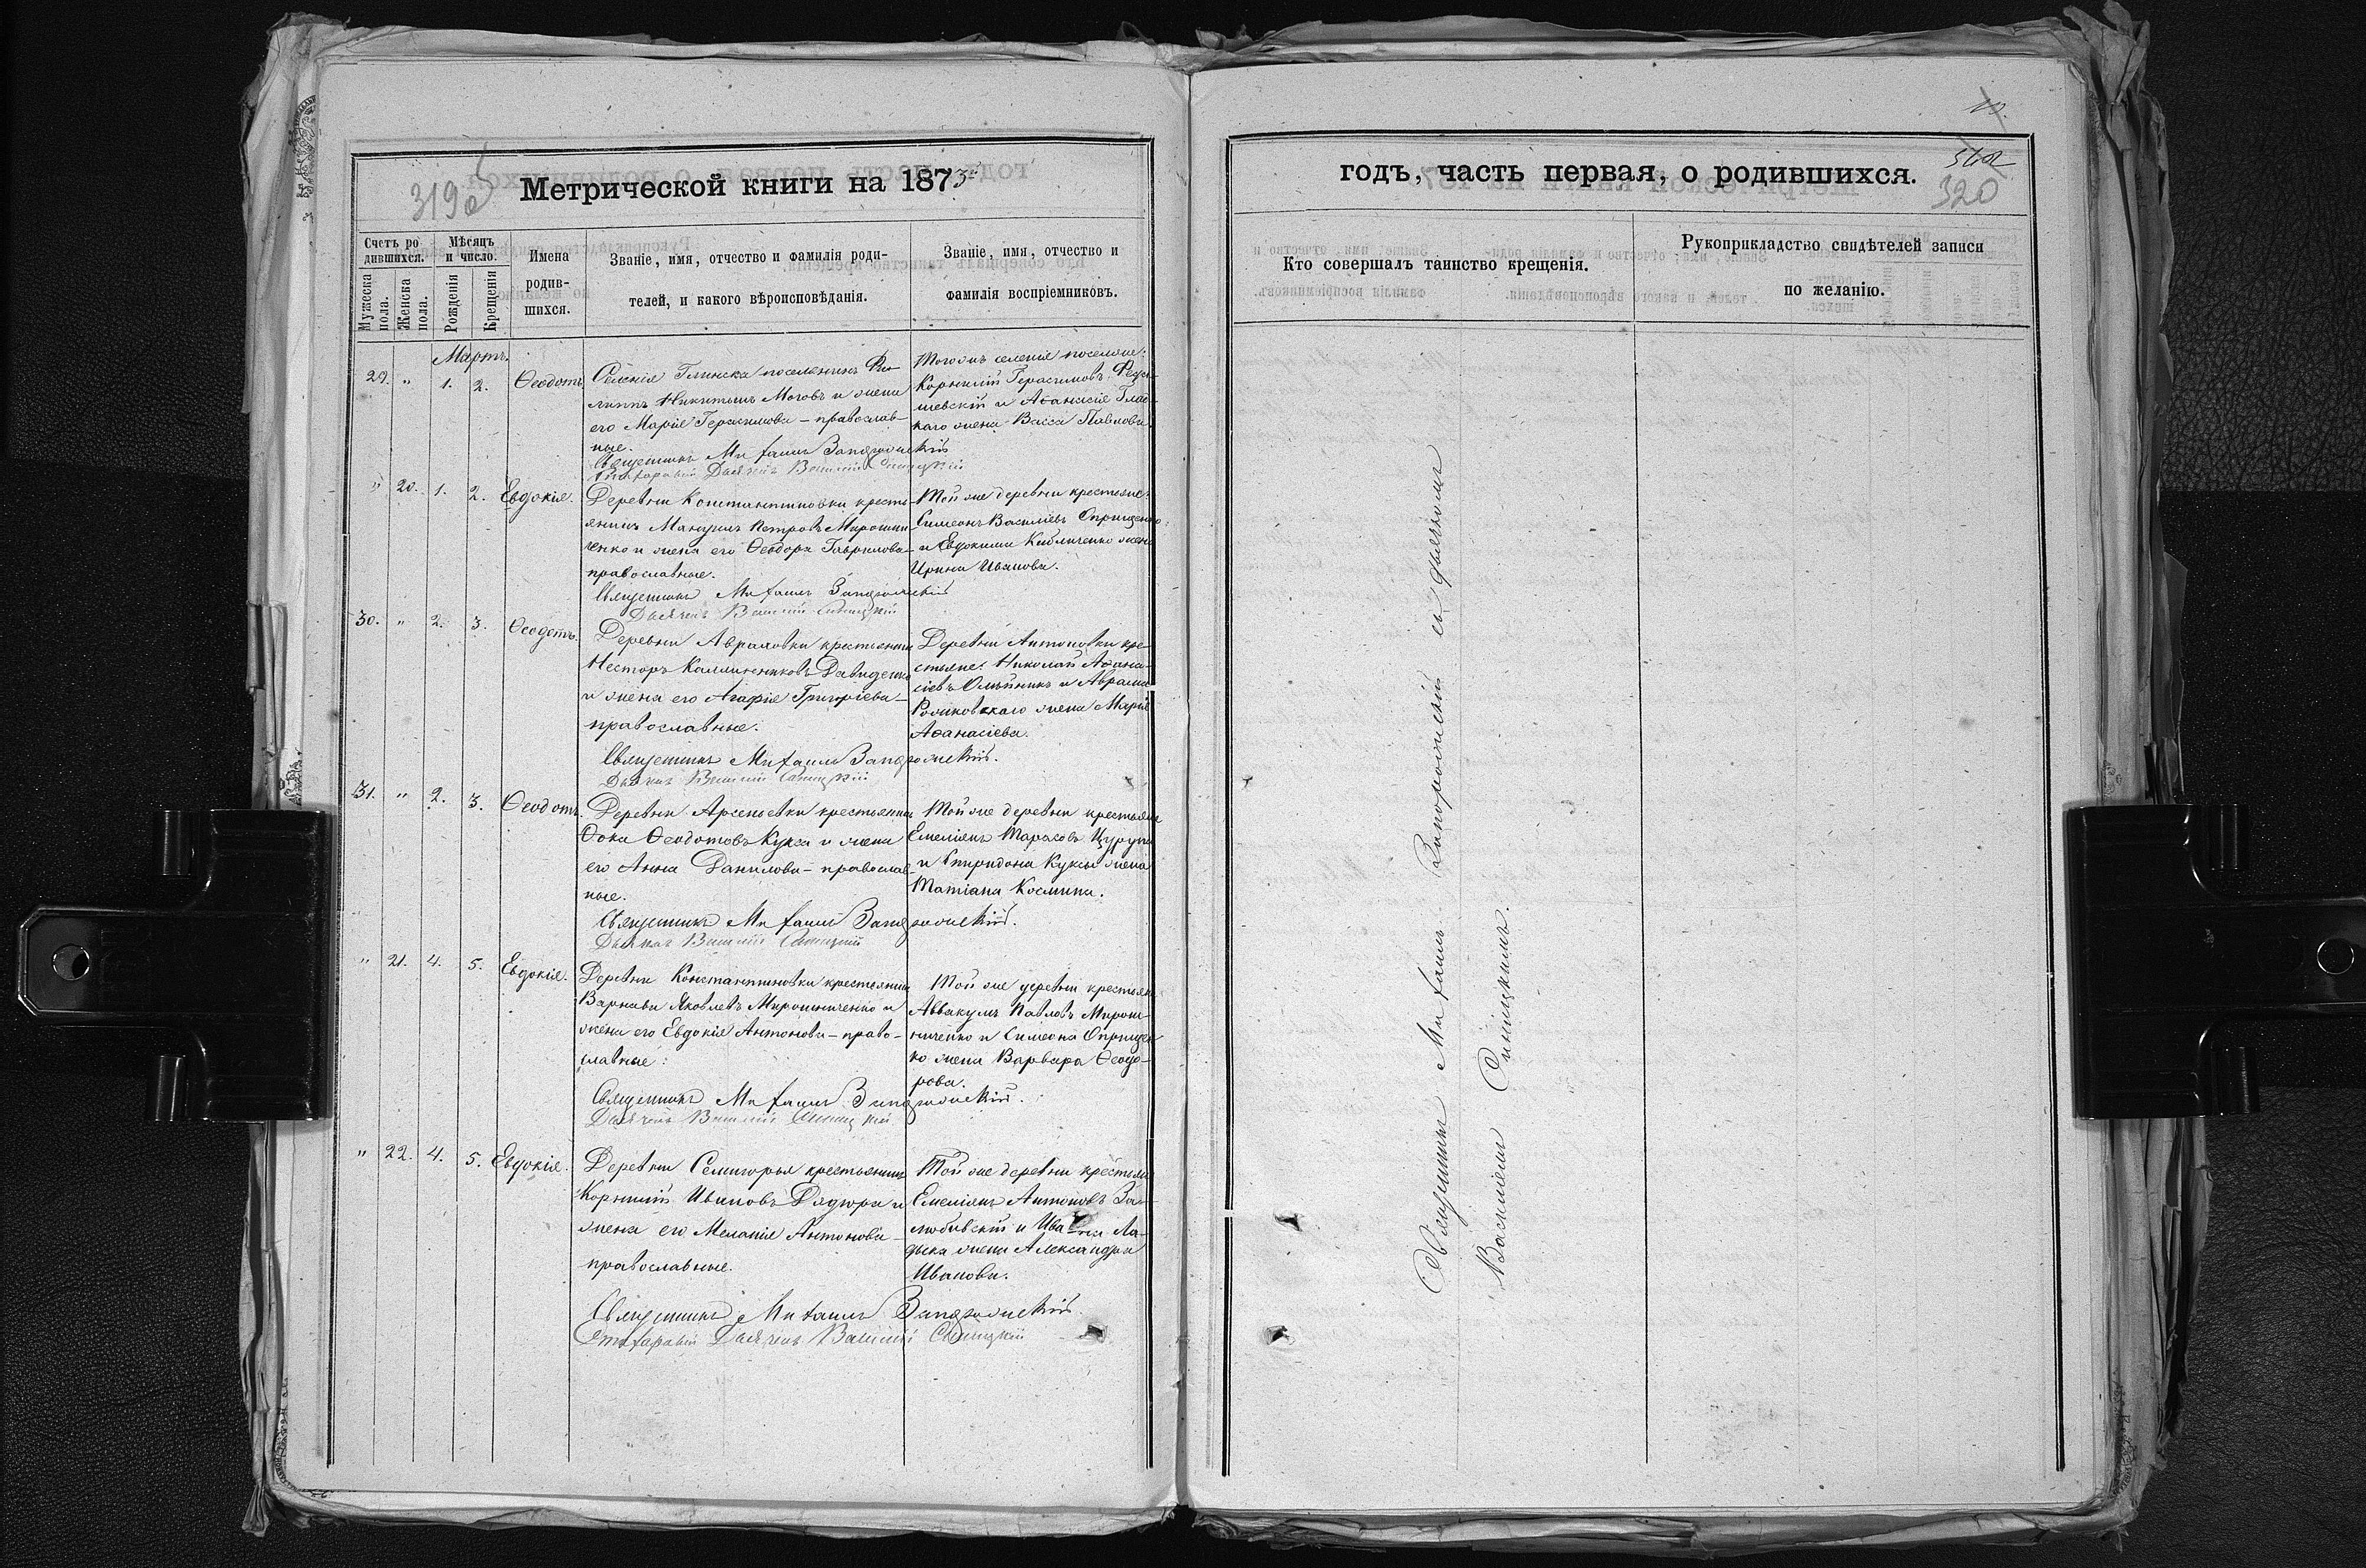 Метрической книги на 1873
319 об
Счетъ родившихся.
Мѣсяцъ и число.
Мужеска пола.
Женска пола.
Рожденія
Крещенія
Имена родившихся.
Званіе, имя, отчество и фамилія роди-
телей, и какого вѣроисповѣданія.
Званіе, имя, отчество и
фамилія воспріемниковъ.
Мартъ.
29. " 1. 2. Ѳеодотъ
Селенія Глинска поселянинъ Фи-
липпъ Никитинъ Моговъ и жена
его Марія Герасимова – православ-
ные.
Тогожъ селенія поселяне:
Корнилій Герасимовъ
и Аѳанасія
жена Васса Павлова.
Священникъ Михаилъ Запорожскій
Дьячекъ Василій Синицкій
" 20. 1. 2. Евдокія.
Деревни Константиновки кресть-
янинъ Мануилъ Петровъ Мирошни-
ченко и жена его Ѳеодора Гаврилова –
православные.
Той же деревни крестьяне:
Симеонъ Васильевъ Оприщенко
и Евдокима жена
Ирина Иванова.
Священникъ Михаилъ Запорожскій
Дьячекъ Василій Синицкій
30. " 2. 3. Ѳеодотъ.
Деревни Аврамовки крестьянинъ
Несторъ Каллиниковъ Давиденко
и жена его Агафія Григоріева –
православные.
Деревни Антоновки кре-
стьяне: Николай Аѳана-
сіевъ Олейникъ и Аврама
жена Марія
Аѳанасіева.
Священникъ Михаилъ Запорожскій.
Дьячекъ Василій Синицкій
31. " 2. 3. Ѳеодотъ.
Деревни Арсеньевки крестьянинъ
Ѳока Ѳеодотовъ Кукса и жена
его Анна Данилова – православ-
ные.
Той же деревни крестьяне
Емеліянъ Тарасовъ Цурупа
и Спиридона Куксы жена
Татіана Космина.
Священникъ Михаилъ Запорожскій.
Дьячекъ Василій Синицкій
" 21. 4. 5. Евдокія.
Деревни Константиновки крестьянинъ
Варнава Яковлевъ Мирошниченко и
жена его Евдокія Антонова – право-
славные:
Той же деревни крестьяне
Аввакумъ Павловъ Мирош-
ниченко и Симеона Оприщен-
ко жена Варвара Ѳеодо-
рова.
Священникъ Михаилъ Запорожскій.
Дьячекъ Василій Синицкій
" 22. 4. 5. Евдокія.
Деревни Семигорья крестьянинъ
Корнилій Ивановъ Дядюра и
жена его Меланія Антонова –
православные.
Той же деревни крестьяне
Емеліянъ Антоновъ За-
любивскій и Ивана Ла-
дыка жена Александра
Иванова.
Священникъ Михаилъ Запорожскій
Дьячекъ Василій Синицкій
годъ, часть первая, о родившихся.
320
Кто совершалъ таинство крещенія.
Рукоприкладство свидѣтелей записи
по желанію.
Священникъ Михаилъ Запорожскій съ дьячкомъ
Василіемъ Синицкимъ.